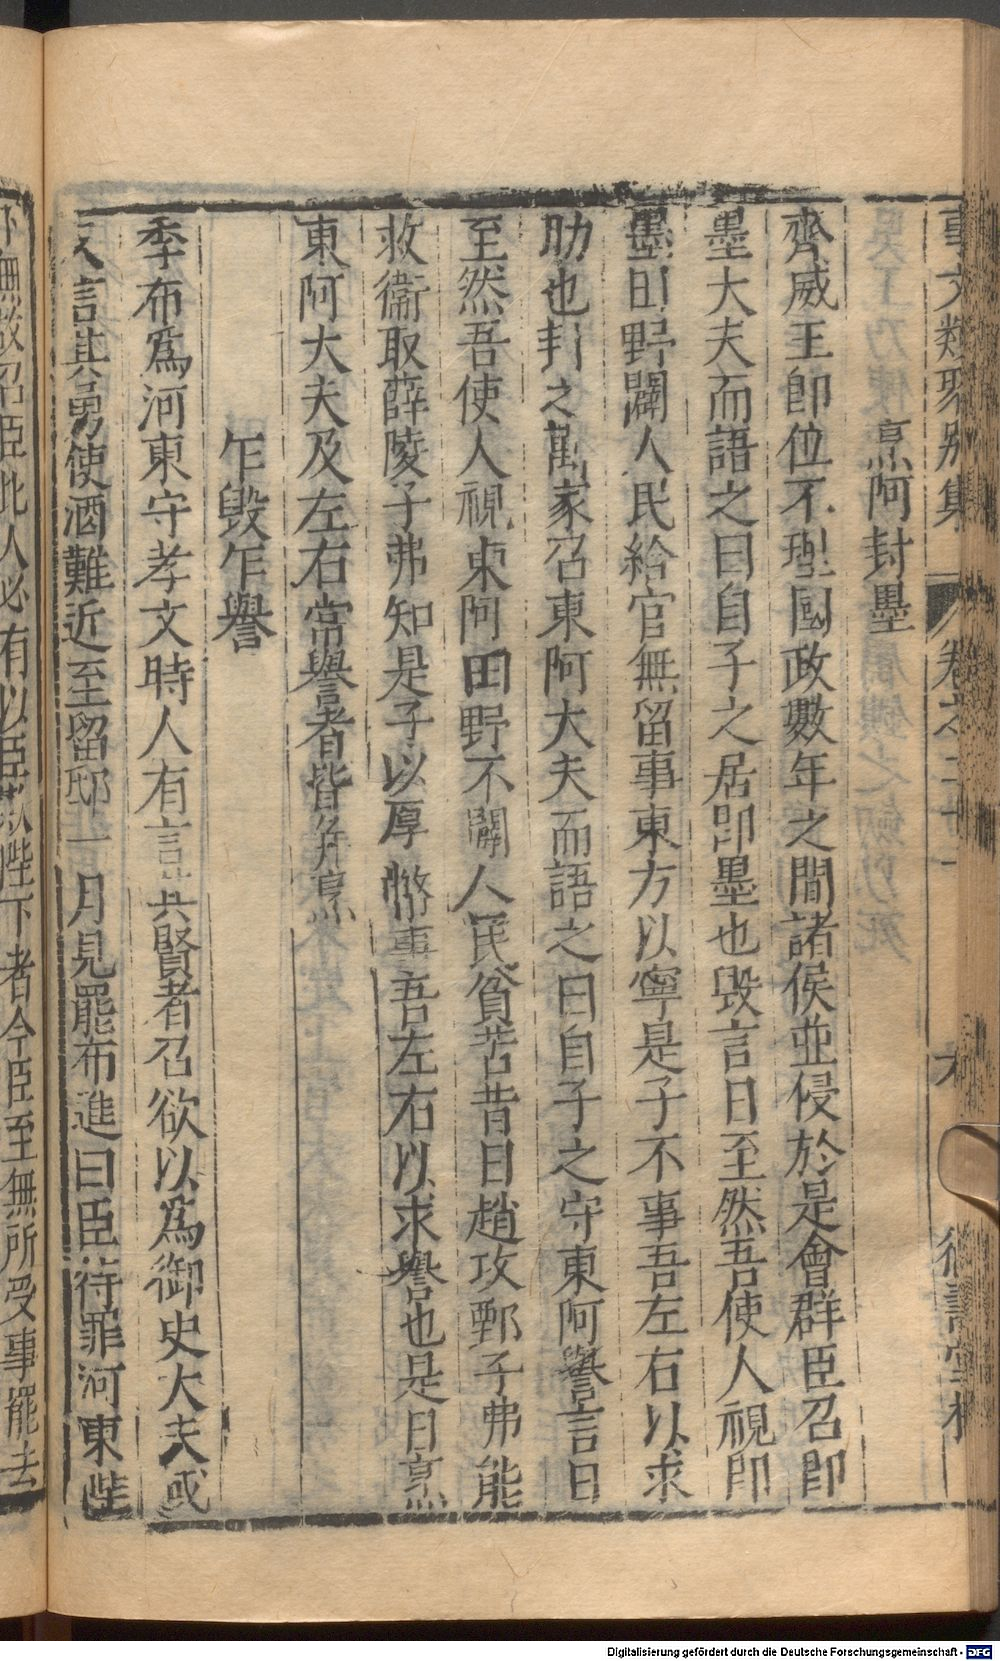 事文類聚别集 卷之二十一
烹阿封墨
齊威王即位不理國政數年之間諸侯並侵於是會群臣召即
墨大夫而語之曰自子之居即墨也毀言日至然吾使人視即
墨田野闢人民給官無留事東方以寧是子不事吾左右以求
助也封之萬家召東阿大夫而語之曰自子之守東阿譽言日
至然吾使人視東阿田野不闢人民貧苦昔日趙攻鄄子弗能
救衛取薛陵子弗知是子以厚幣事吾左右以求譽也是日烹
東阿大夫及左右常譽者皆并烹
乍毀乍譽
季布為河東守孝文時人有言其賢者召欲以為御史大夫或
又言其勇使酒難近至留邸一月見罷布進曰臣待罪河東陛
下無故召臣此人必有以臣欺陛下者今臣至無所受事罷去
Digitalisierung gefördert durch die Deutsche Forschungsgemeinschaft - DFG